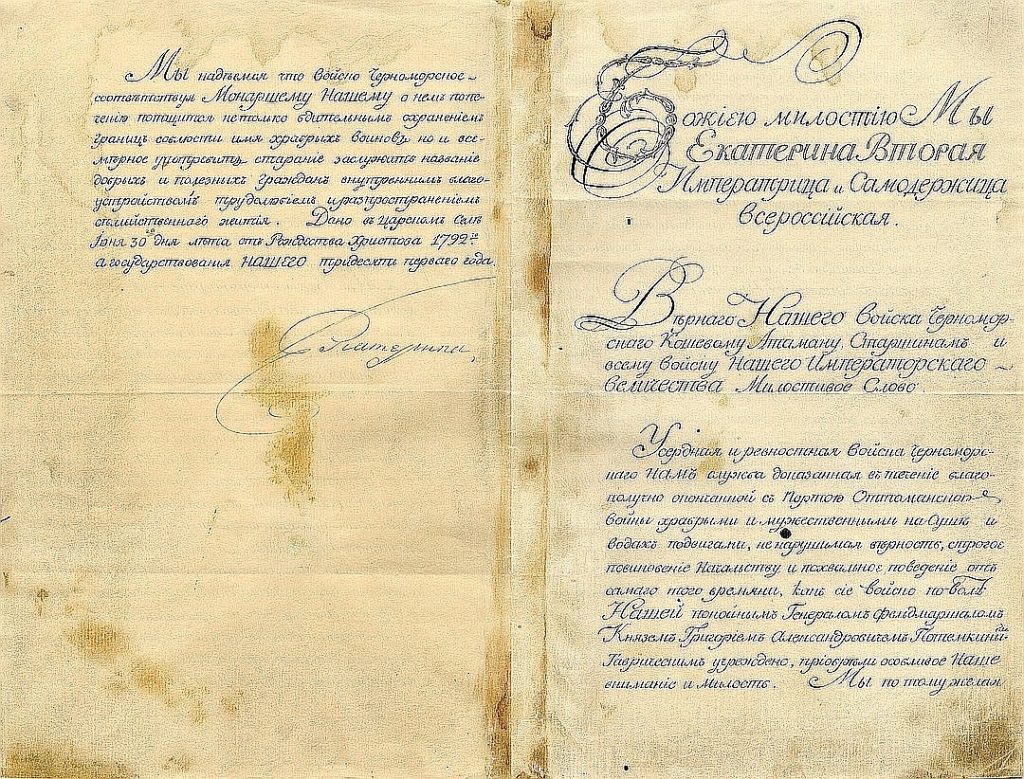 Мы надѣемся что Войско Черноморское
соотвѣтствуя Монаршему Нашему о немъ попе-
ченію потщится не только бдительнымъ охраненіемъ
границъ соблюсти имя храбрыхъ воиновъ но и все-
мѣрное употребитъ стараніе заслужить названіе
добрыхъ и полезныхъ гражданъ внутреннимъ благо-
устройствомъ трудолюбіемъ и распространеніемъ
семейственнаго житія. Дано въ Царскомъ Селѣ
Іюня 30го дня лѣта отъ Рождества Христова 1792го
а государствования НАШЕГО тридесять перваго года.
Екатерина
Божіею милостію Мы
Екатерина Вторая
Императрица и Самодержица
всероссійская.
Вѣрнаго Нашего Войска Черномор-
скаго Кошевому Атаману, Старшинамъ и
всему Войску Нашего Императорскаго
величества Милостивое Слово.
Усердная и ревностная Войска Черноморс-
каго НАМЪ служба доказанная въ теченіе благо-
получно оконченной съ Портою Оттоманскою
войны храбрыми и мужественными на Сушѣ и
водахъ подвигами, не нарушимая вѣрность, строгое
повиновеніе Начальству и похвальное поведеніе отъ
самаго того времяни, какъ сіе Войско по волѣ
Нашей покойнымъ Генераломъ фельдмаршаломъ
Княземъ Григоріемъ Александровичемъ Потемкинымъ
Таврическимъ учреждено, пріобрѣли особливое Наше
вниманіе и милость. Мы по тому желая